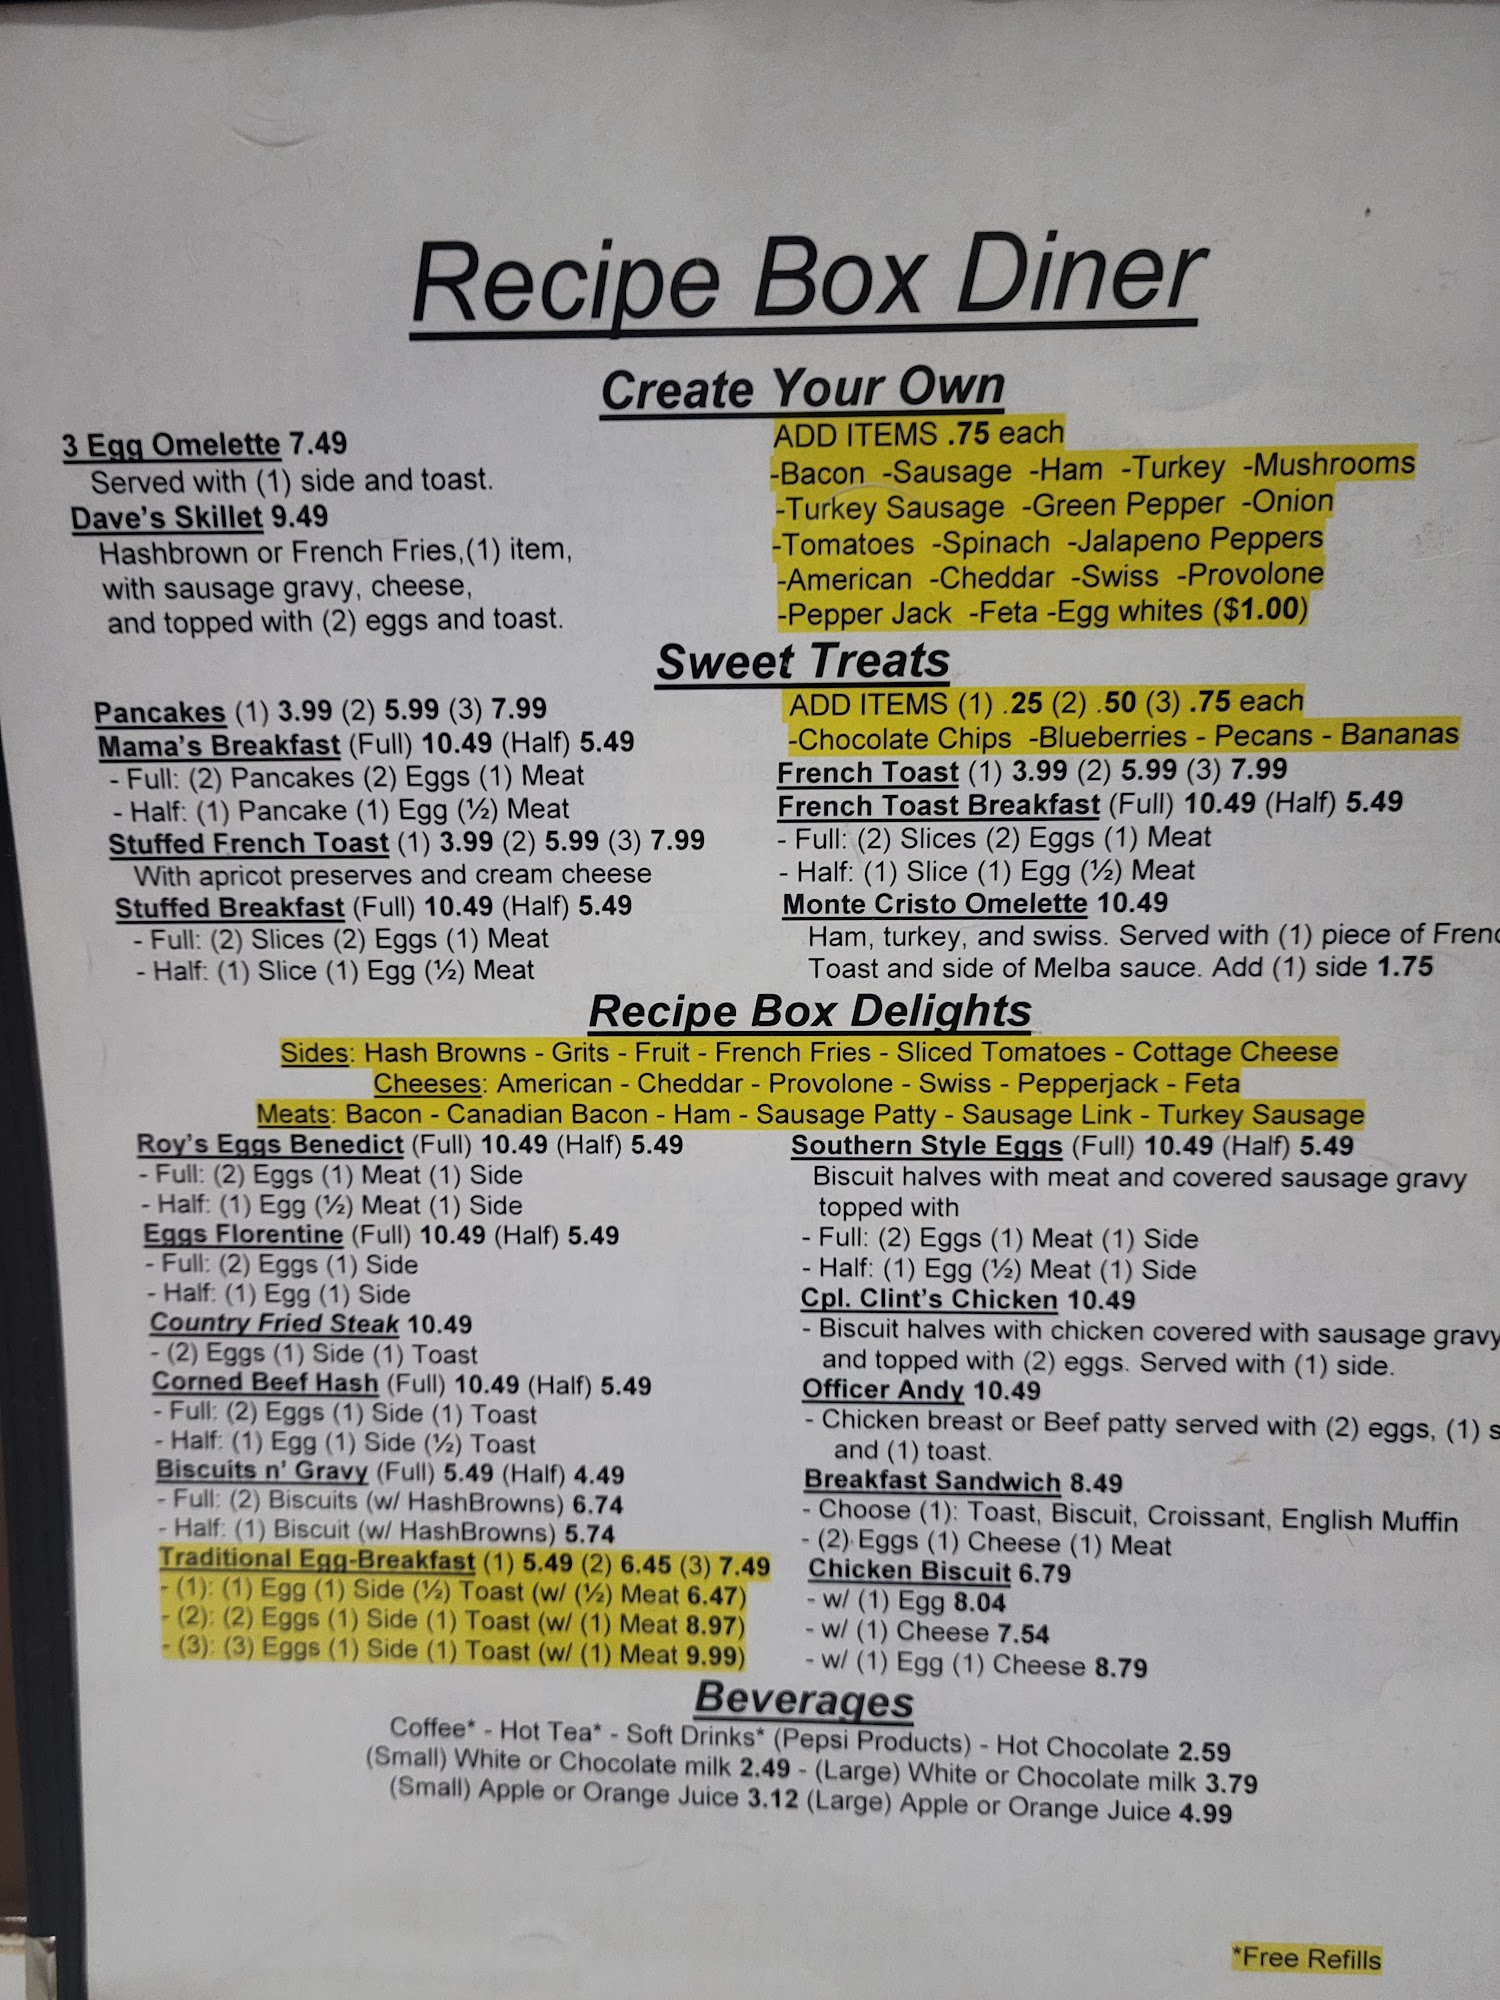 Recipe Box Diner
Create Your Own
3 Egg Omelette 7.49
Served with (1) side and toast.
Dave's Skillet 9.49
Hashbrown or French Fries,(1) item,
with sausage gravy, cheese,
and topped with (2) eggs and toast.
ADD ITEMS .75 each
-Bacon -Sausage -Ham -Turkey -Mushrooms
-Turkey Sausage -Green Pepper -Onion
-Tomatoes -Spinach -Jalapeno Peppers
-American -Cheddar -Swiss -Provolone
-Pepper Jack -Feta -Egg whites ($1.00)
Sweet Treats
Pancakes (1) 3.99 (2) 5.99 (3) 7.99
Mama's Breakfast (Full) 10.49 (Half) 5.49
- Full: (2) Pancakes (2) Eggs (1) Meat
- Half: (1) Pancake (1) Egg (½) Meat
Stuffed French Toast (1) 3.99 (2) 5.99 (3) 7.99
With apricot preserves and cream cheese
Stuffed Breakfast (Full) 10.49 (Half) 5.49
- Full: (2) Slices (2) Eggs (1) Meat
- Half: (1) Slice (1) Egg (½) Meat
ADD ITEMS (1) .25 (2) .50 (3) .75 each
-Chocolate Chips -Blueberries - Pecans - Bananas
French Toast (1) 3.99 (2) 5.99 (3) 7.99
French Toast Breakfast (Full) 10.49 (Half) 5.49
- Full: (2) Slices (2) Eggs (1) Meat
- Half: (1) Slice (1) Egg (½) Meat
Monte Cristo Omelette 10.49
Ham, turkey, and swiss. Served with (1) piece of Frenc
Toast and side of Melba sauce. Add (1) side 1.75
Recipe Box Delights
Sides: Hash Browns - Grits - Fruit - French Fries - Sliced Tomatoes - Cottage Cheese
Cheeses: American - Cheddar - Provolone - Swiss - Pepperjack - Feta
Meats: Bacon - Canadian Bacon - Ham - Sausage Patty - Sausage Link - Turkey Sausage
Roy's Eggs Benedict (Full) 10.49 (Half) 5.49
- Full: (2) Eggs (1) Meat (1) Side
- Half: (1) Egg (½) Meat (1) Side
Eggs Florentine (Full) 10.49 (Half) 5.49
- Full: (2) Eggs (1) Side
- Half: (1) Egg (1) Side
Country Fried Steak 10.49
- (2) Eggs (1) Side (1) Toast
Corned Beef Hash (Full) 10.49 (Half) 5.49
- Full: (2) Eggs (1) Side (1) Toast
- Half: (1) Egg (1) Side (½) Toast
Biscuits n' Gravy (Full) 5.49 (Half) 4.49
- Full: (2) Biscuits (w/ HashBrowns) 6.74
- Half: (1) Biscuit (w/ HashBrowns) 5.74
Traditional Egg-Breakfast (1) 5.49 (2) 6.45 (3) 7.49
- (1): (1) Egg (1) Side (½) Toast (w/ (½) Meat 6.47)
- (2): (2) Eggs (1) Side (1) Toast (w/ (1) Meat 8.97)
- (3): (3) Eggs (1) Side (1) Toast (w/ (1) Meat 9.99)
Southern Style Eggs (Full) 10.49 (Half) 5.49
Biscuit halves with meat and covered sausage gravy
topped with
- Full: (2) Eggs (1) Meat (1) Side
- Half: (1) Egg (½) Meat (1) Side
Cpl. Clint's Chicken 10.49
- Biscuit halves with chicken covered with sausage gravy
and topped with (2) eggs. Served with (1) side.
Officer Andy 10.49
- Chicken breast or Beef patty served with (2) eggs, (1) s
and (1) toast.
Breakfast Sandwich 8.49
- Choose (1): Toast, Biscuit, Croissant, English Muffin
- (2) Eggs (1) Cheese (1) Meat
Chicken Biscuit 6.79
- w/ (1) Egg 8.04
- w/ (1) Cheese 7.54
- w/ (1) Egg (1) Cheese 8.79
Beverages
Coffee* - Hot Tea* - Soft Drinks* (Pepsi Products) - Hot Chocolate 2.59
(Small) White or Chocolate milk 2.49 - (Large) White or Chocolate milk 3.79
(Small) Apple or Orange Juice 3.12 (Large) Apple or Orange Juice 4.99
*Free Refills